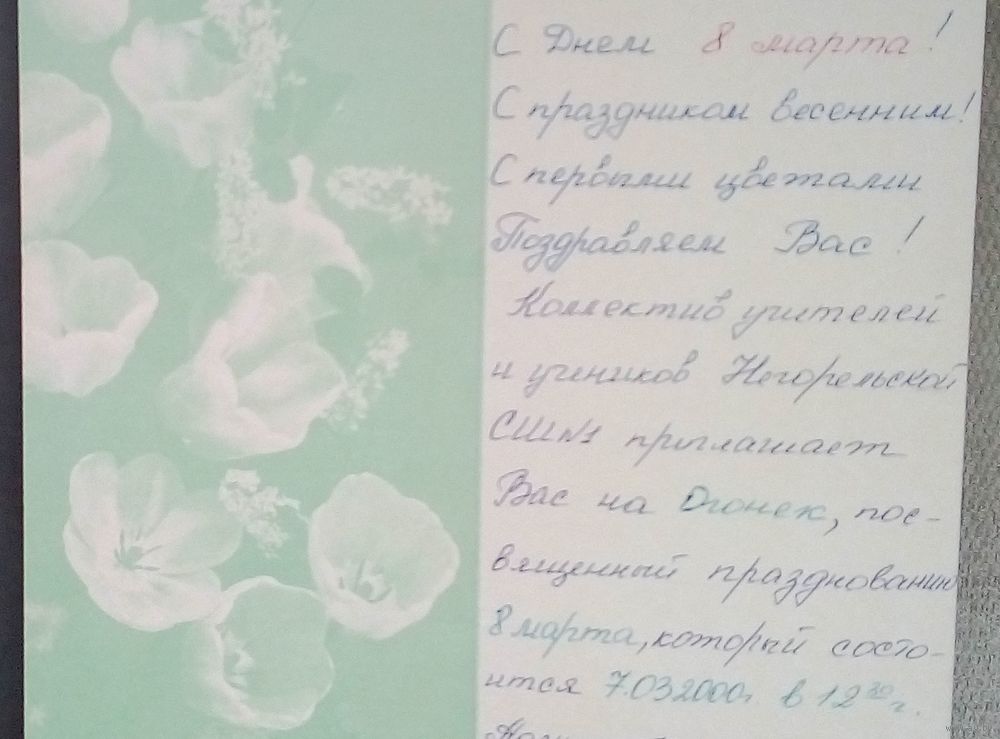 С Днем 8 марта!
С праздником весенним!
С первыми цветами
Поздравляем Вас!
Коллектив учителей
и учеников Негорельской
СШ№1 приглашает
Вас на Огонек, пос-
вященный празднованию
8 марта, который состо-
ится 7.03.2000г. в 12 30 г.